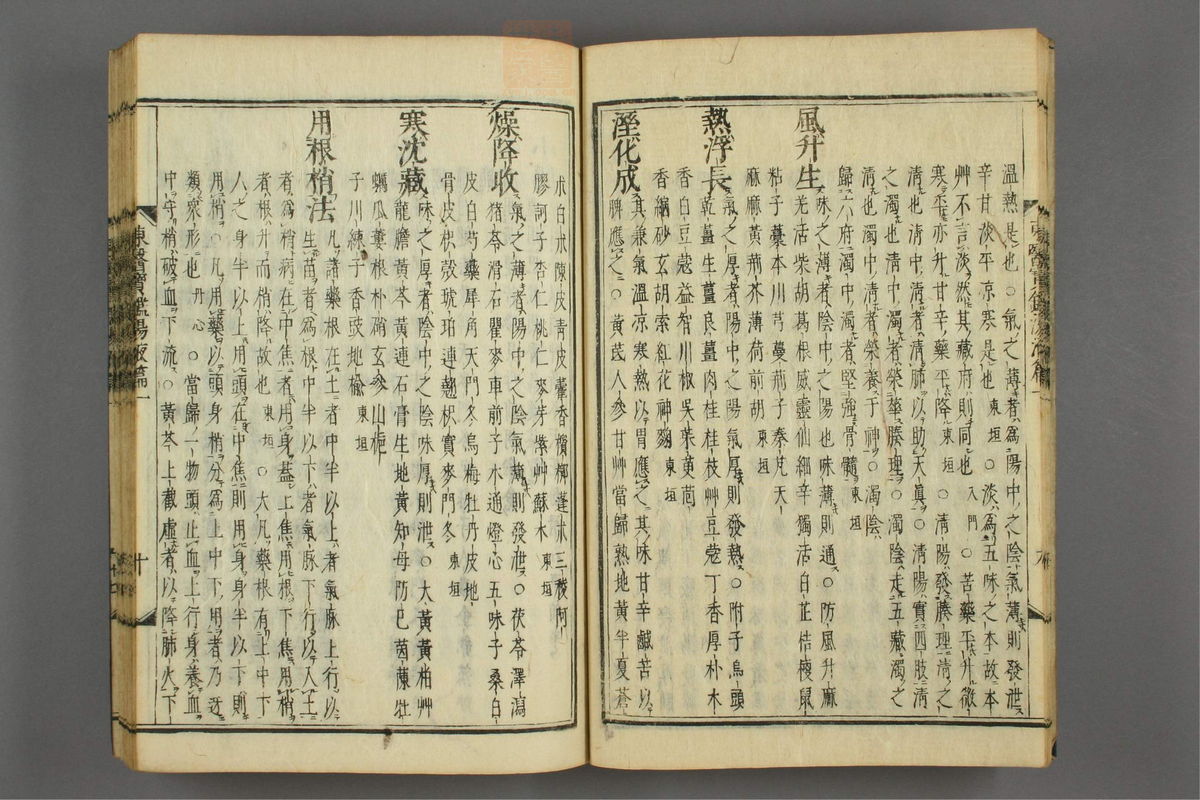 溫熱是也○氣之薄者爲陽中之陰氣薄則發泄
辛甘淡平凉寒是也 東垣 ○淡爲五味之本故本
艸不言淡然其藏府則同也 入門 ○苦藥平升微
寒平亦升甘辛藥平降 東垣 ○清陽發腠理清之
清也清中清者清肺以助天眞○清陽實四肢清
之濁也清中濁者榮華腠理○濁陰走五藏濁之
清也濁中清者榮養于神○濁陰
歸六府濁中濁者堅強骨髓 東垣
風升生 味之薄者陰中之陽也味薄則通○防風升麻
羌活柴胡葛根威靈仙細辛獨活白芷桔梗鼠
粘子藁本川芎蔓荊子秦芃天
麻麻黃荊芥薄荷前胡 東垣
熱浮長 氣之厚者陽中之陽氣厚則發熱○附子烏頭
乾薑生薑良薑肉桂桂枝艸豆蔻丁香厚朴木
香白豆蔻益智川椒吳茱萸茴
香縮砂玄胡索紅花神麴 東垣
溼化成 其兼氣溫凉寒熱以胃應之其味甘辛鹹苦以
脾應之○黃茋人參甘艸當歸熟地黃半夏蒼
朮白朮陳皮靑皮藿香檳榔蓬朮三稜阿
膠訶子杏仁桃仁麥牙紫艸蘇木 東垣
燥降收 氣之薄者陽中之陰氣薄則發泄○茯苓澤瀉
猪苓滑石瞿麥車前子木通燈心五味子桑白
皮白芍藥犀角天門冬烏梅牡丹皮地
骨皮枳殼琥珀連翹枳實麥門冬 東垣
寒沈藏 味之厚者陰中之陰味厚則泄○大黃黃柏艸
龍膽黃芩黃連石膏生地黃知母防巳茵蔯牡
蠣瓜蔞根朴硝玄參山梔
子川練子香豉地楡 東垣
用根梢法 凡諸藥根在土者中半以上者氣脉上行以
生苗者爲根中半以下者氣脉下行以入土
者爲梢病在中焦者用身蓋上焦用根下焦用梢
者根升而梢降故也 東垣 ○大凡藥根有上中下
人之身半以上用頭在中焦則用身身半以下則
用梢○凡用藥以頭身梢分爲上中下用者乃述
類象形也 丹心 ○當歸一物頭止血上行身養血
中守梢破血下流○黃芩上截虛者以降肺火下
東醫寶鑑湯液篇一 十